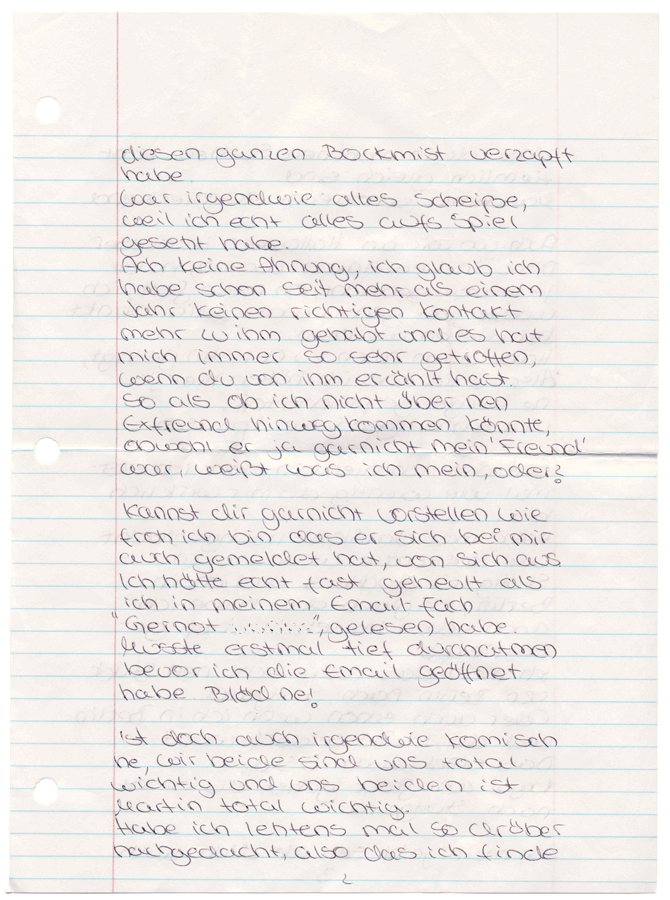 diesen ganzen Bockmist verzapft
habe
War irgendwie alles scheiße,
weil ich echt alles aufs Spiel
gesetzt habe.
Ach keine Ahnung, ich glaub ich
habe schon seit mehr als einem
Jahr keinen richtigen Kontakt
mehr zu ihm gehabt und es hat
mich immer so sehr getroffen,
wenn du von ihm erzählt hast.
So als ob ich nicht über nen
Exfreund hinwegkommen könnte,
obwohl er ja garnicht mein 'Freund'
war, weißt was ich mein, oder?
Kannst dir garnicht vorstellen wie
froh ich bin das er sich bei mir
auch gemeldet hat, von sich aus
Ich hätte echt fast geheult als
ich in meinem Email-fach
"Gernot ........", gelesen habe.
Musste erstmal tief durchatmen
bevor ich die Email geöffnet
habe Blöd ne!
Ist doch auch irgendwie komisch
ne, wir beide sind uns total
wichtig und uns beiden ist
Martin total wichtig.
Habe ich letztens mal so drüber
nachgedacht, also das ich finde
2